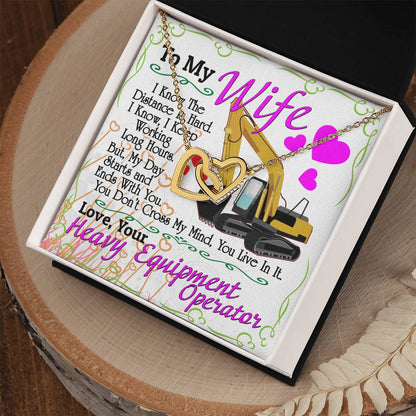 To My Wife
I Know The
Distance Is Hard.
I Know, I Keep
Working
Long Hours.
But, My Day
Starts and
Ends With You.
You Don't Cross My Mind, You Live In It.
Love, Your
Heavy Equipment
Operator